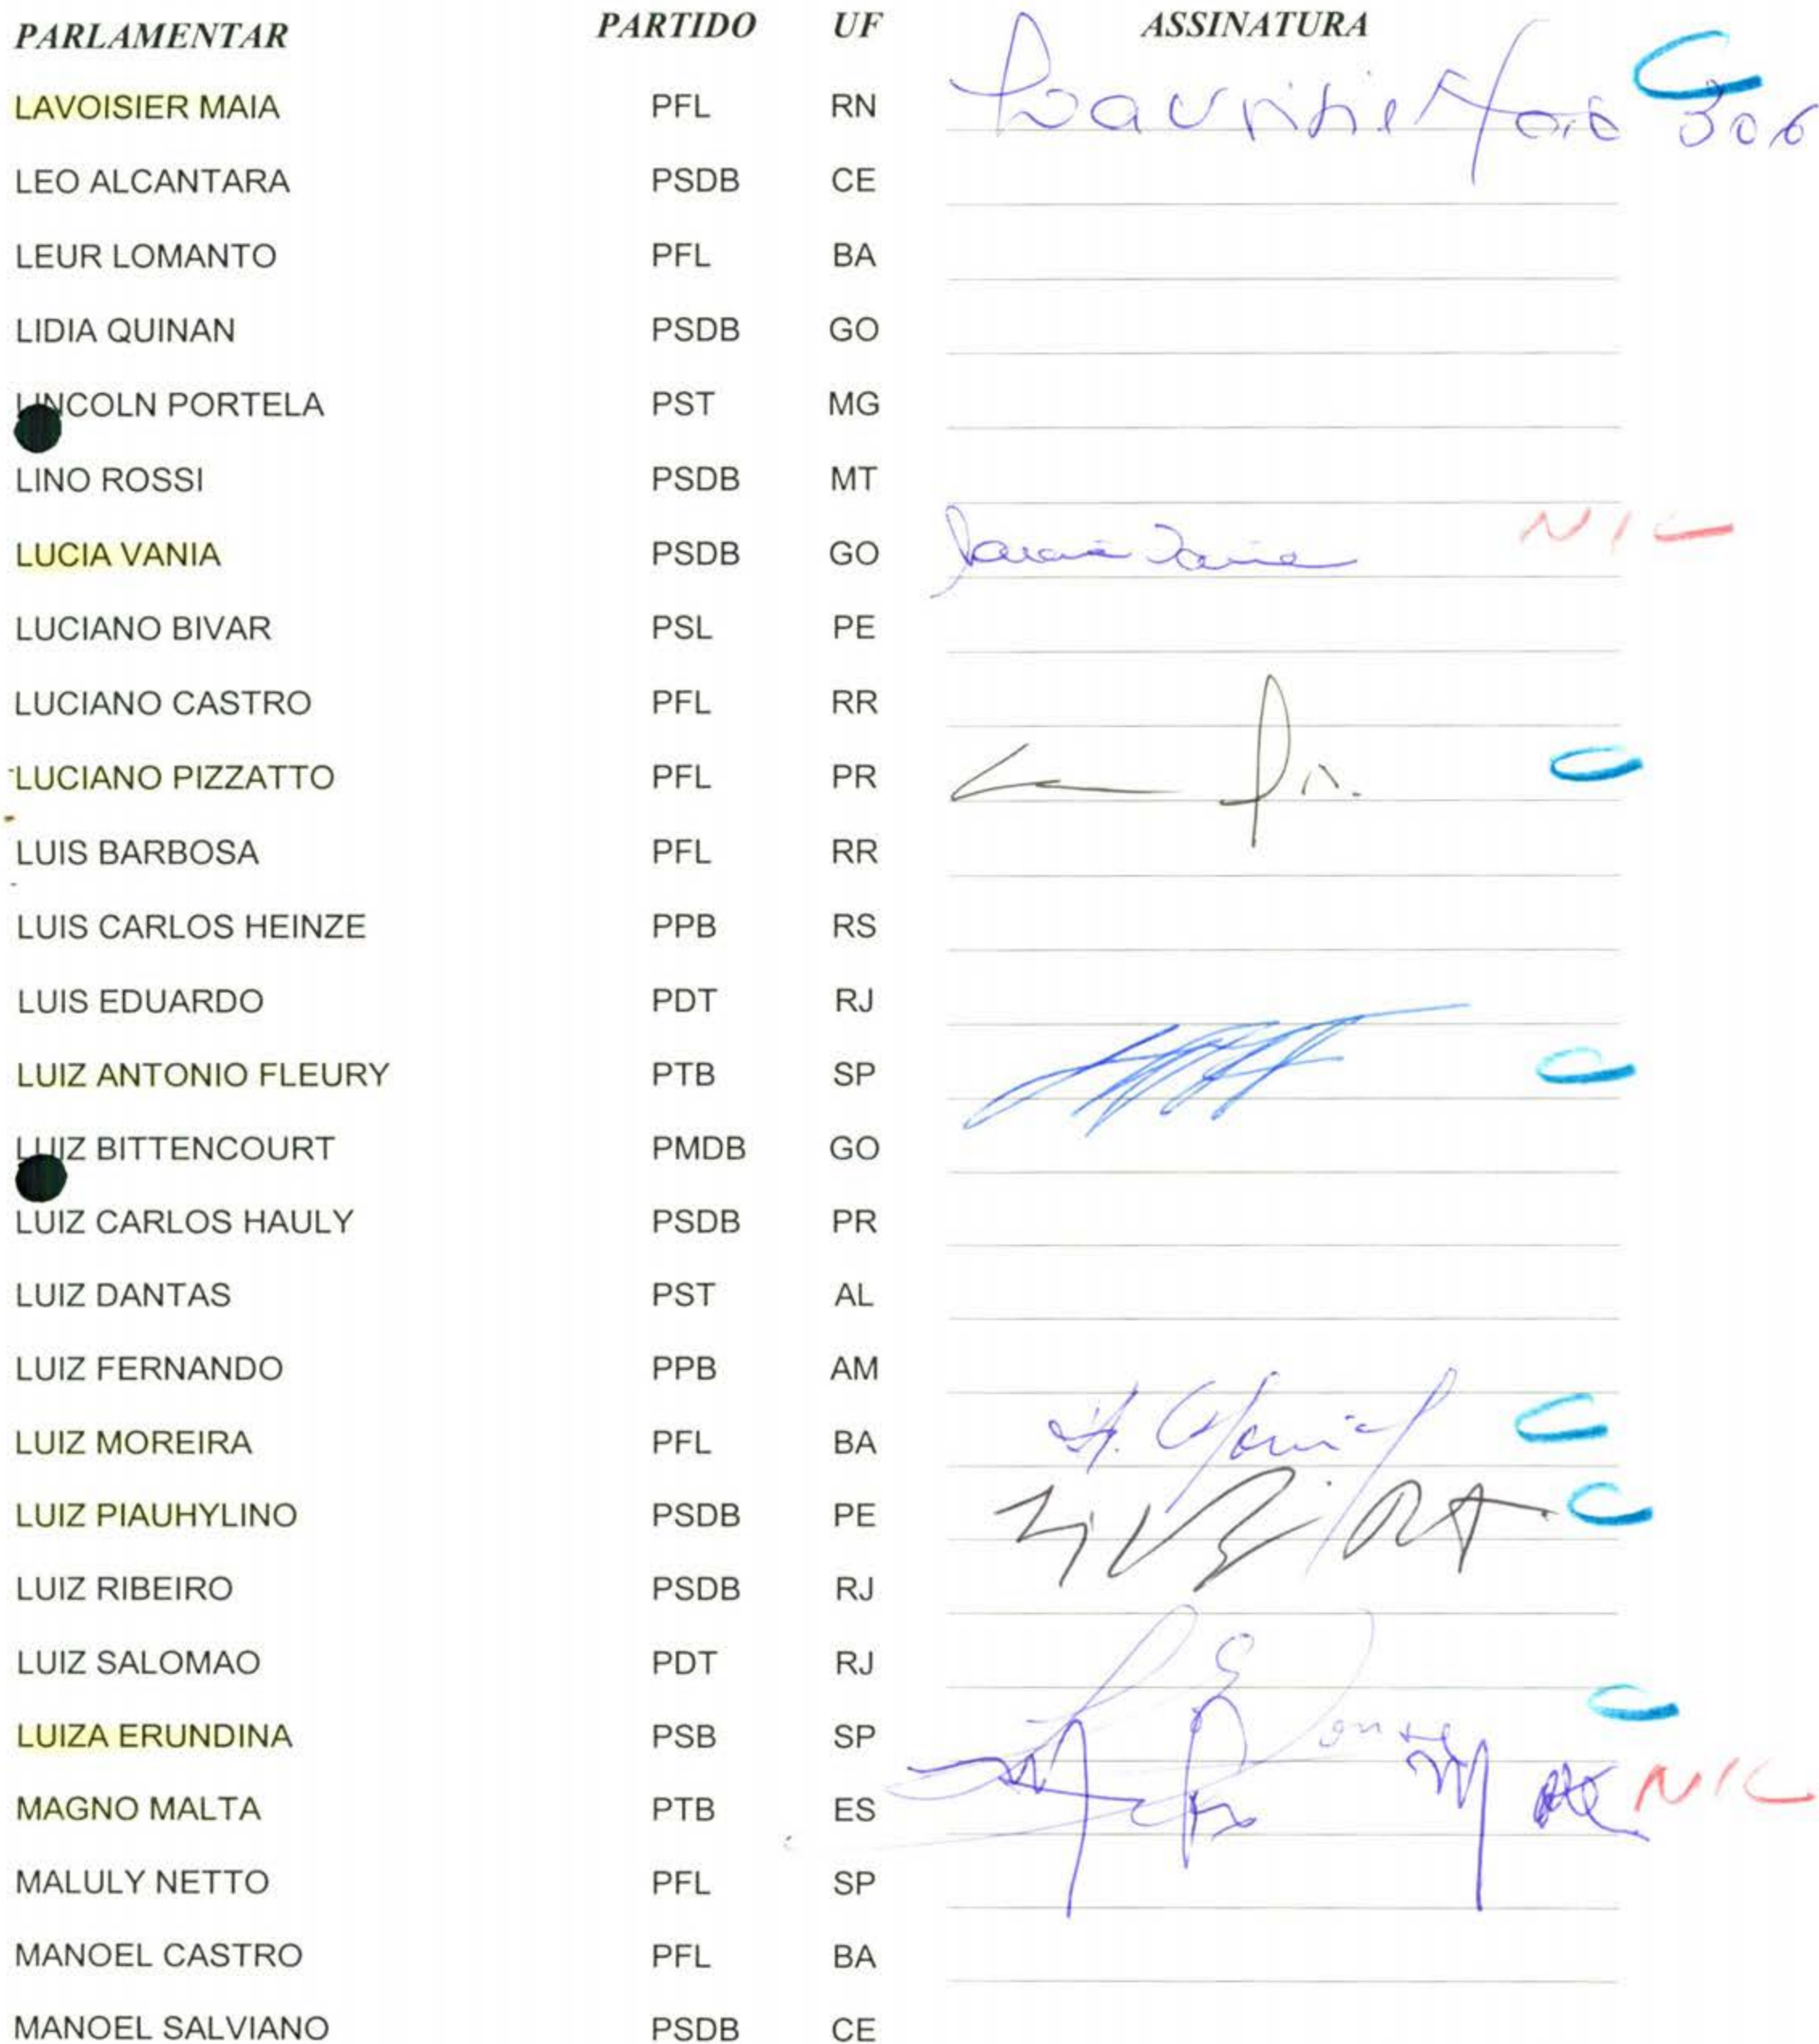 PARLAMENTAR PARTIDO UF ASSINATURA
LAVOISIER MAIA PFL RN 306
LEO ALCANTARA PSDB CE
LEUR LOMANTO PFL BA
LIDIA QUINAN PSDB GO
LINCOLN PORTELA PST MG
LINO ROSSI PSDB MT
LUCIA VANIA PSDB GO NIC
LUCIANO BIVAR PSL PE
LUCIANO CASTRO PFL RR
LUCIANO PIZZATTO PFL PR C
LUIS BARBOSA PFL RR
LUIS CARLOS HEINZE PPB RS
LUIS EDUARDO PDT RJ
LUIZ ANTONIO FLEURY PTB SP C
LUIZ BITTENCOURT PMDB GO
LUIZ CARLOS HAULY PSDB PR
LUIZ DANTAS PST AL
LUIZ FERNANDO PPB AM
LUIZ MOREIRA PFL BA C
LUIZ PIAUHYLINO PSDB PE C
LUIZ RIBEIRO PSDB RJ
LUIZ SALOMAO PDT RJ
LUIZA ERUNDINA PSB SP C
MAGNO MALTA PTB ES NIC
MALULY NETTO PFL SP
MANOEL CASTRO PFL BA
MANOEL SALVIANO PSDB CE